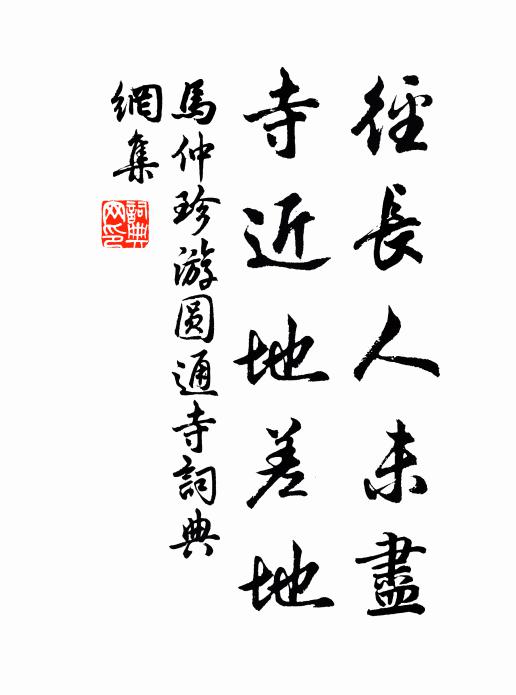 徑長人未盡
寺近地差地
馬仲珍游圓通寺詞典
網集
詞典
网印